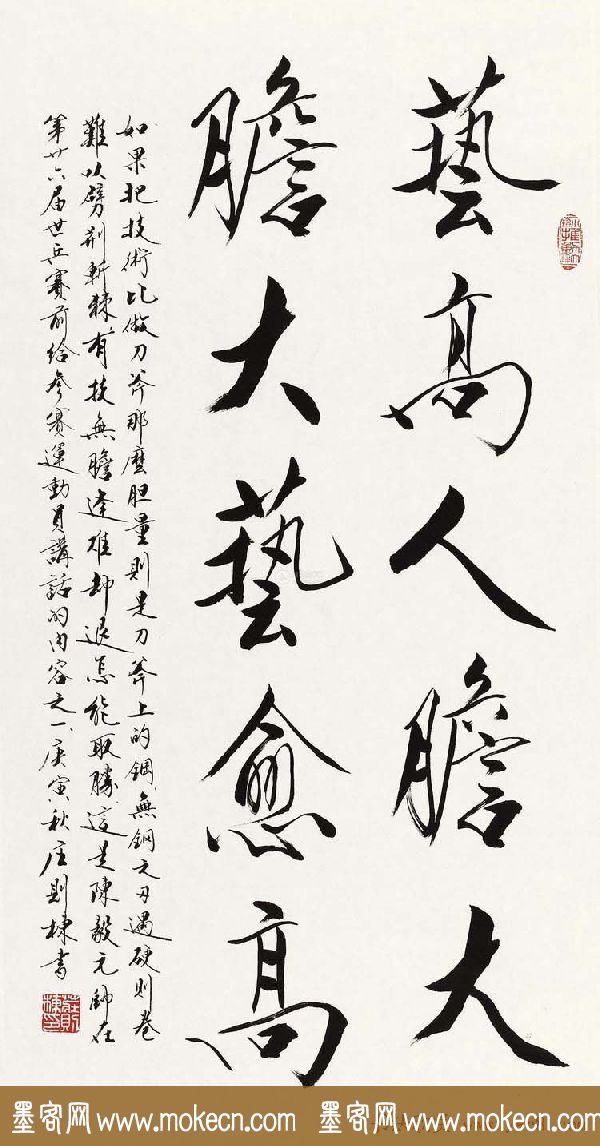 藝高人膽大
膽大藝愈高
如果把技術比做刀斧那麼胆量則是刀斧上的鋼無鋼之刃遇硬則卷
難以劈荆斬棘有技無膽逢難却退怎能取勝這是陳毅元帥在
第廿六届世乒賽前給參賽運動員講話的内容之一庚寅秋庄則棟書
墨客网 www.mokecn.com 墨客网 www.mokecn.com